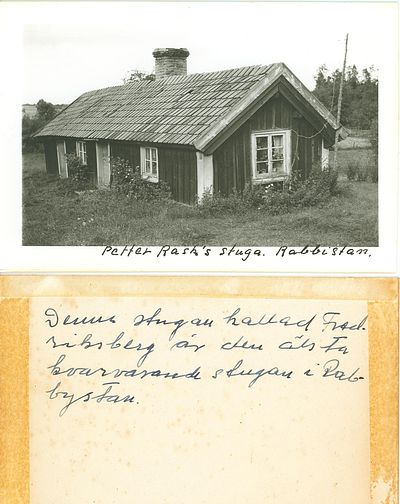 Petter Rask's stuga. Rabbistan.
Denna stugan kallad Fred-
riksberg är den älsta
kvarvarande stugan i Rab-
bystan.